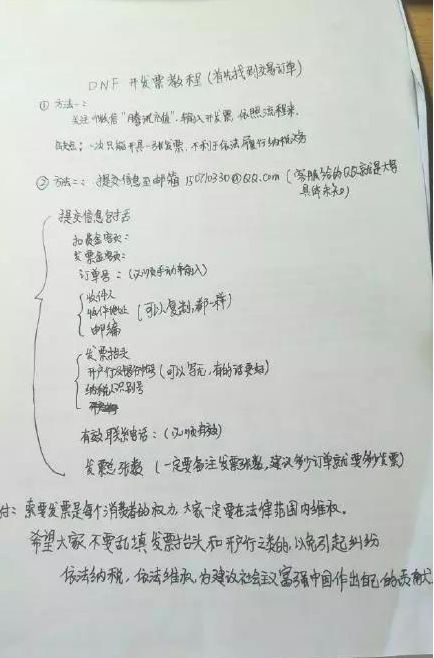 DNF 开发票教程 (首先找到交易订单)
① 方法一:
关注微信“腾讯充值”, 输入开发票, 依照流程来,
缺点: 一次只能开具一张发票, 不利于依法履行纳税义务
② 方法二: 提交信息至邮箱 150710330@QQ.com (客服给的QQ就是大写
具体未知)
提交信息包括
扣费金额:
发票金额:
订单号: (必须手动输入)
收件人
收件地址 (可以复制, 都一样)
邮编
发票抬头
开户行及银行帐号 (可以写无, 有的话更好)
纳税人识别号
有效联系电话: (必须有效)
发票总张数 (一定要备注发票张数, 建议多少订单就要多少发票)
付: 索要发票是每个消费者的权力, 大家一定要在法律范围内维权。
希望大家不要乱填发票抬头和开户行之类的, 以免引起纠纷
依法纳税, 依法维权, 为建设社会主义富强中国作出自己的贡献